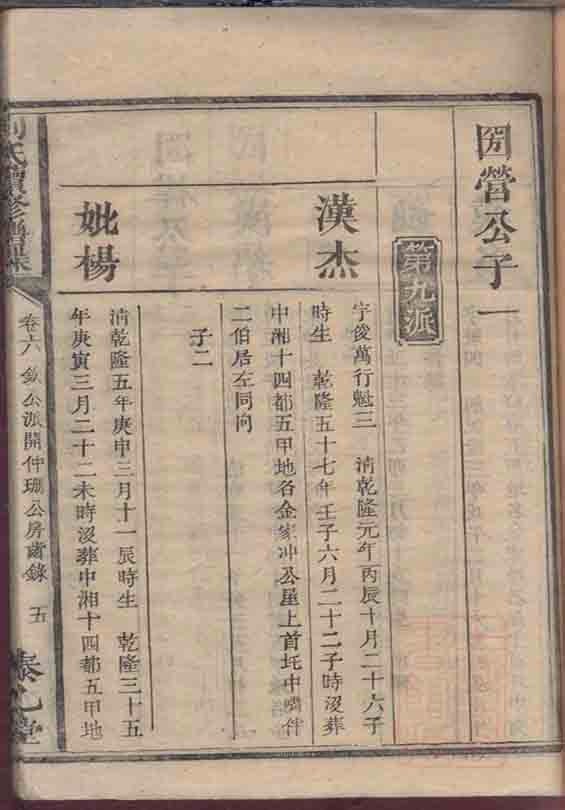 營公子一
第九派
漢杰
字俊萬行魁三 清乾隆元年丙辰十月二十六子
時生 乾隆五十七年壬子六月二十二子時沒葬
中湘十四都五甲地名金家冲公屋上首圫中嘴伴
二伯居左同向
子二
妣楊
清乾隆五年庚申三月十一辰時生 乾隆三十五
年庚寅三月二十二未時沒葬中湘十四都五甲地
氏續修譜
卷六 欽公派開仲珊公房齒錄 五
堂